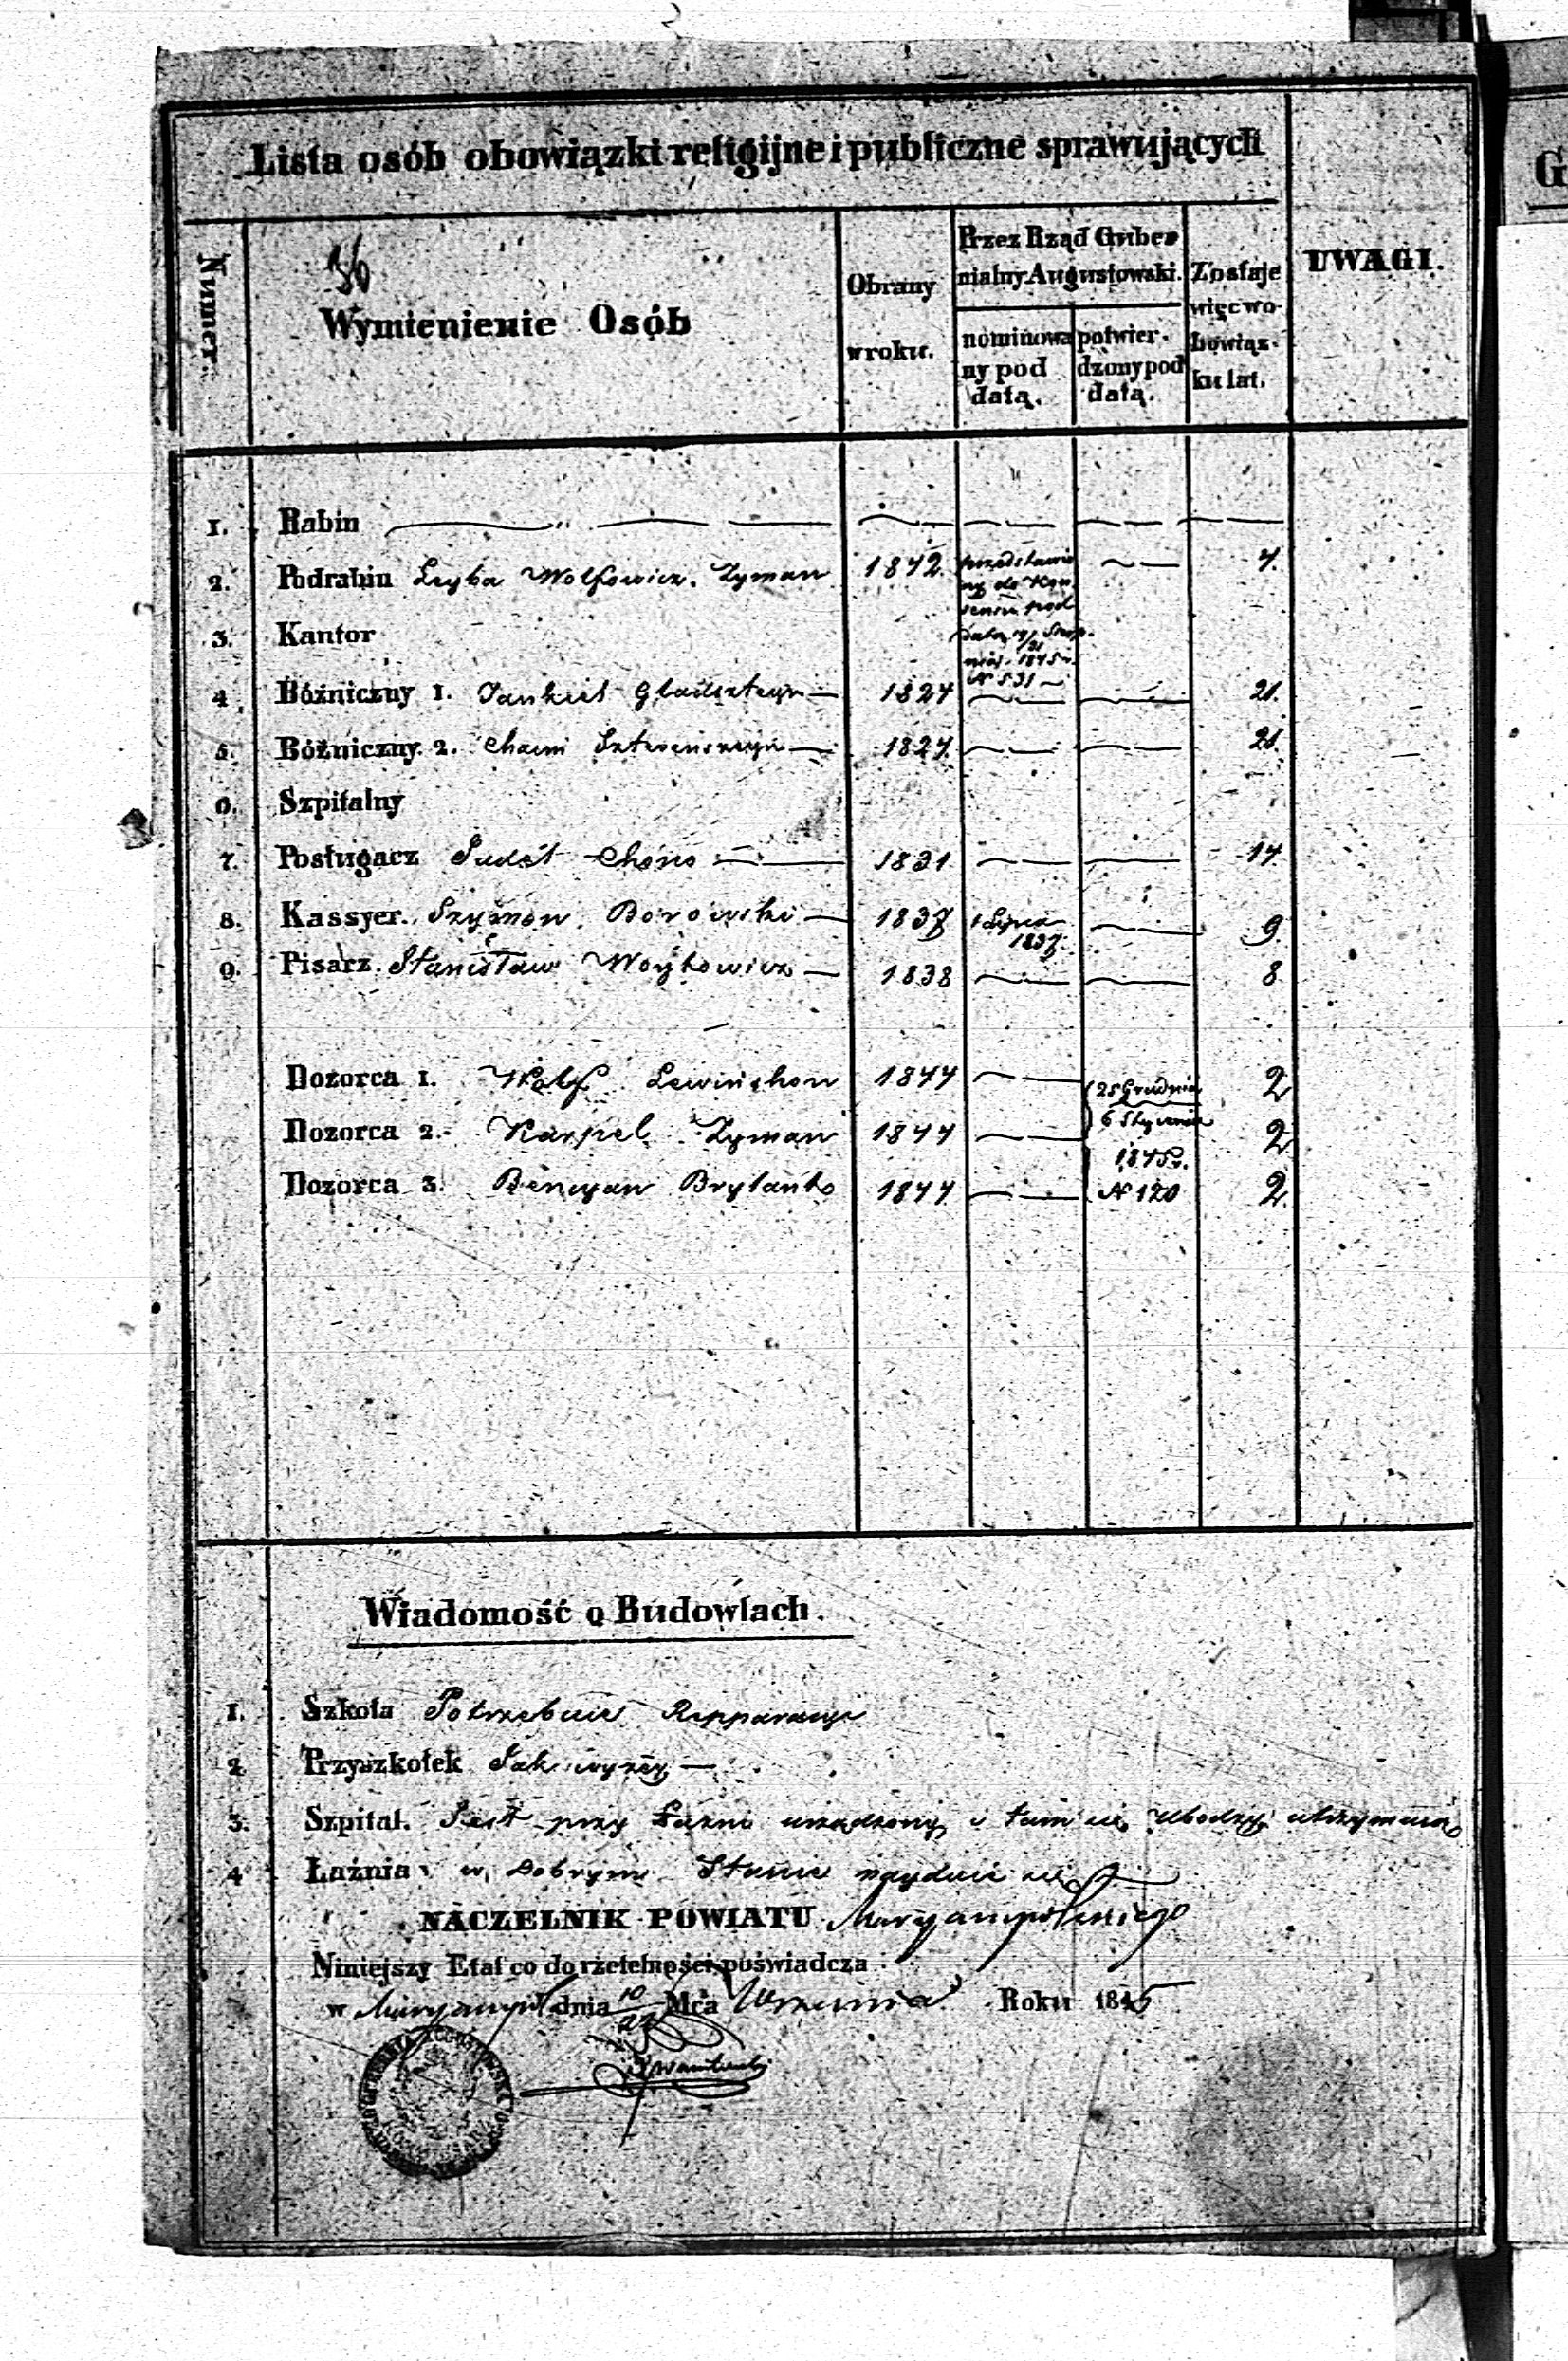 Lista osób obowiązki religijne i publiczne sprawujących
36
Numer
Wymienienie Osób
Obrany w roku.
Przez Rząd Guber nialny Augustowski.
nominowa ny pod datą.
potwier. dzony pod datą.
Zostaje więc wo- bowiąz- ku lat.
UWAGI.
1. Rabin
2. Podrabin Leyba Wolfowicz. Zyman 1842. 4.
przedstawio
ny do Kon
sensu pod
3. Kantor
1845 r.
N 531
4. Bóźniczny 1. Jankiel Gladszteyn 1824 21.
5. Bóżniczny. 2. Chaim 1824. 21.
6. Szpitalny
7. Posługacz Judel Chono 1831 14
8. Kassyer. Szymon Borowski 1837 1 Lipca 1837. 9.
9. Pisarz. Stanisław Woytowicz 1838 8
Dozorca 1. Wolf Lewinshon 1844 25 Grudnia 2
Dozorca 2. Karpel Zyman 1844 6 Stycznia 2
1845 r.
Dozorca 3. Bencyan Brylant 1844 N 120 2.
Wiadomość o Budowlach.
1. Szkoła Potrzebuie Repparacyi
2. Przyszkołek Jak wyżey
3. Szpital. Jest przy Łazni urządzony i tam się Ubodzy utrzymuią
4 Łaźnia w Dobrym Stanie nayduie się
NACZELNIK POWIATU Maryampolskiego
Niniejszy Etat co do rzetelności poświadcza
w Maryampolu dnia 10/22 Mca Września Roku 1845